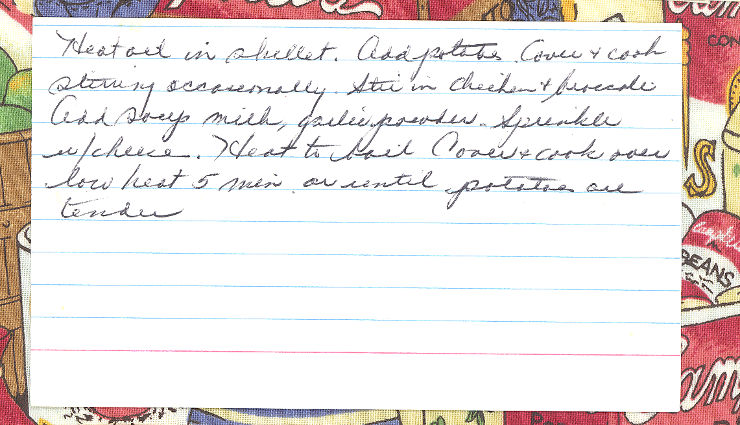 Heat oil in skillet. Add potatoes Cover & cook
stirring occasionally. Stir in chicken & broccoli
Add soup milk, garlic powder. Sprinkle
w/cheese. Heat to boil Cover & cook over
low heat 5 min or until potatoes are
tender
CON
S
Campbell's
BEANS
Cam